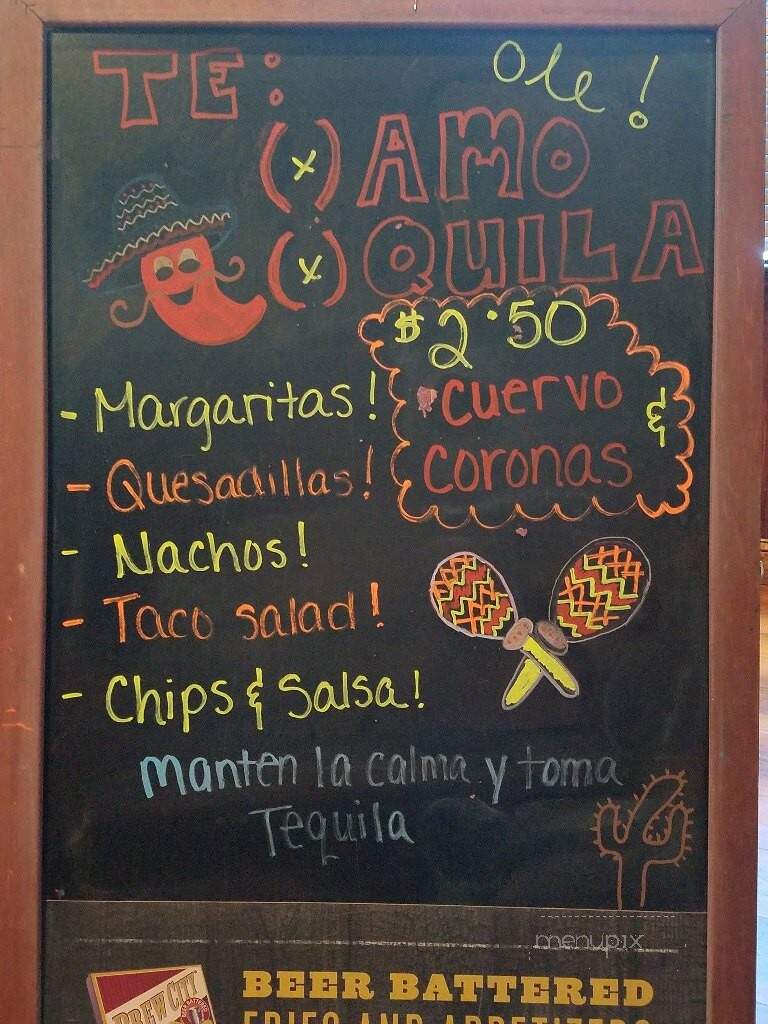 TE:
Ole!
(x) AMO
(x) QUILA
$2.50
cuervo &
coronas
- Margaritas!
- Quesadillas!
- Nachos!
- Taco salad!
- Chips & Salsa!
manten la calma y toma
Tequila
menupix
BREW CITY
BEER BATTERED
FRIES AND APPETIZERS